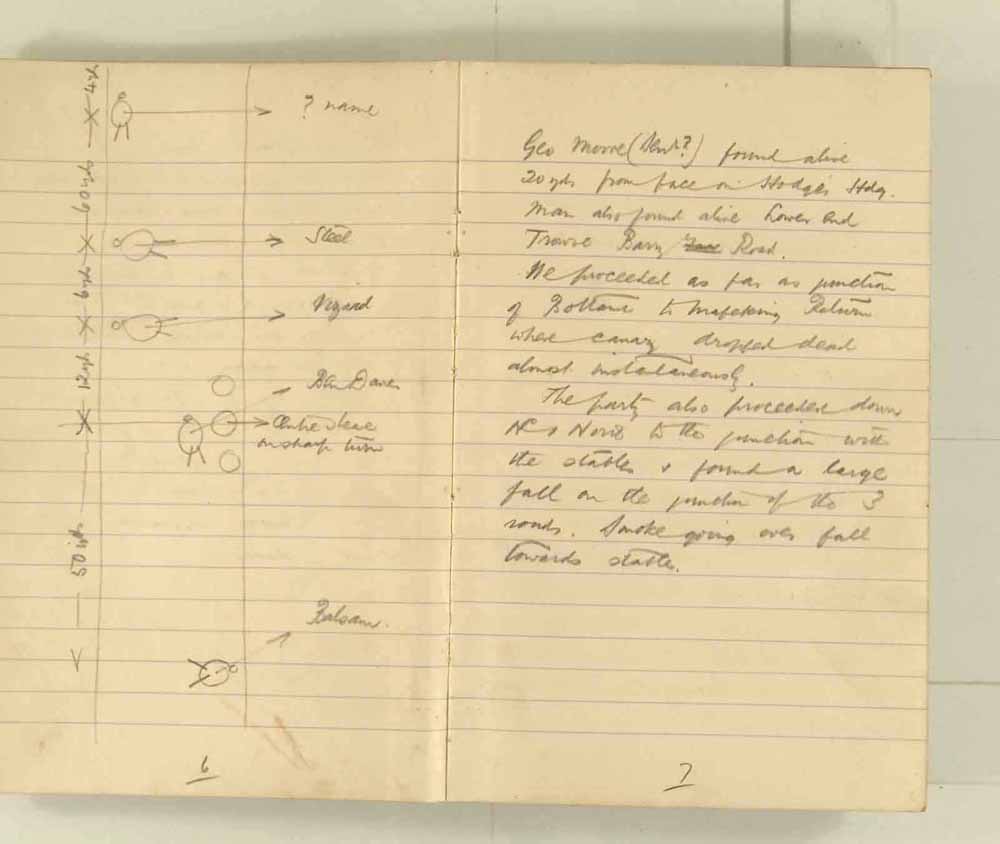 4 yds
? name
60 yds
Steel
6 yds
Vizard
12 yds
Ben Davies
Centre
on sharp turn
50 yds
Balsam.
6
Geo Moore (Dend?) found alive
20 yds from face on Hodges Hdg.
Man also found alive Lower End
Trowse Barry Road.
We proceeded as far as junction
of Bottoms to Mafeking Return
where canary dropped dead
almost instantaneously.
The party also proceeded down
No 1 North to the junction with
the stables & found a large
fall on the junction of the 3
roads. Smoke going over fall
towards stables.
7